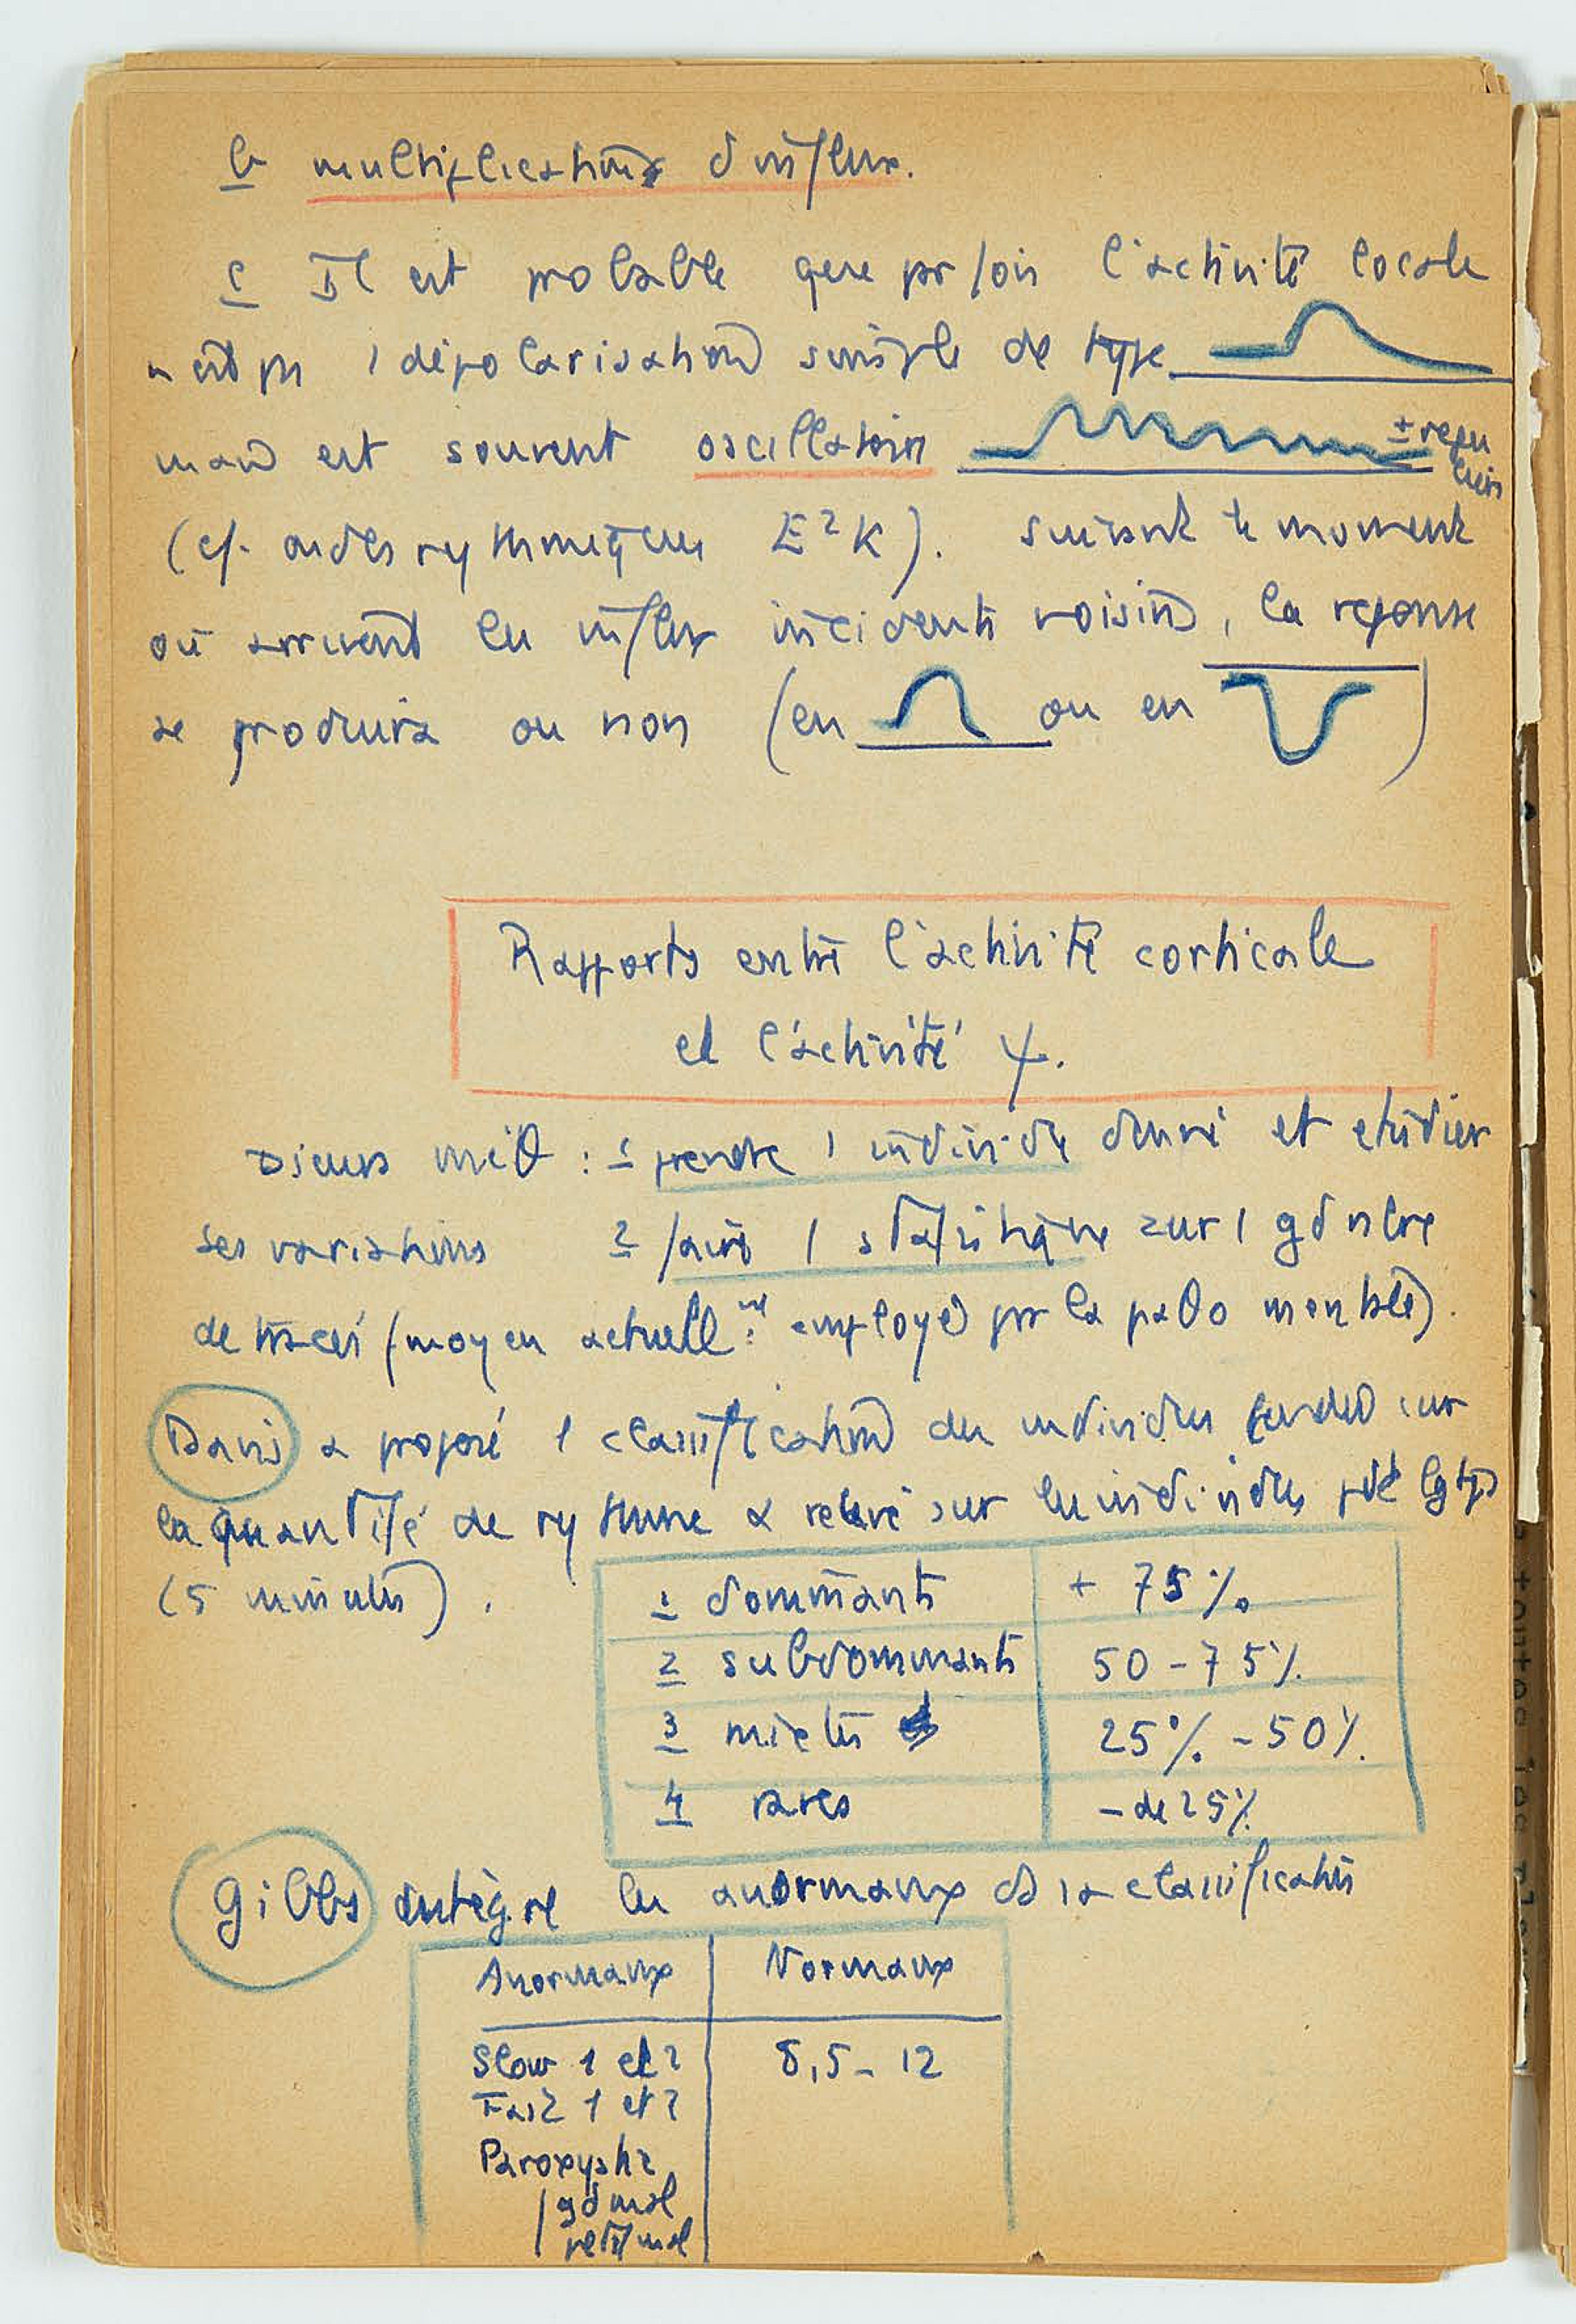 b multiplications d'influx.
c Il est probable que parfois l'activité locale
n'est pas 1 dépolarisation simple de type
mais est souvent oscillatoire ± régu
lière
(cf. ondes rythmiques E²K). Suivant le moment
où arrivent les influx incidents voisins, la réponse
se produira ou non (en ou en )
Rapports entre l'activité corticale
et l'activité ψ.
méθ : 1 prendre 1 individu donné et étudier
ses variations 2 faire 1 statistique sur 1 gd nbre
de tracés (moyen actuell^mt employé par la paθo mentale).
Davis a proposé 1 classification des individus fondée sur
la quantité de rythme α relevé sur les individus pdt lgtps
(5 minutes).
1 dominants + 75%
2 subdominants 50-75%
3 mixtes 25% - 50%
4 rares - de 25%
Gibbs intègre les anormaux ds la classification
Anormaux Normaux
Slow 1 et 2 8,5 - 12
Fast 1 et 2
Paroxysts
gd mal
petit mal